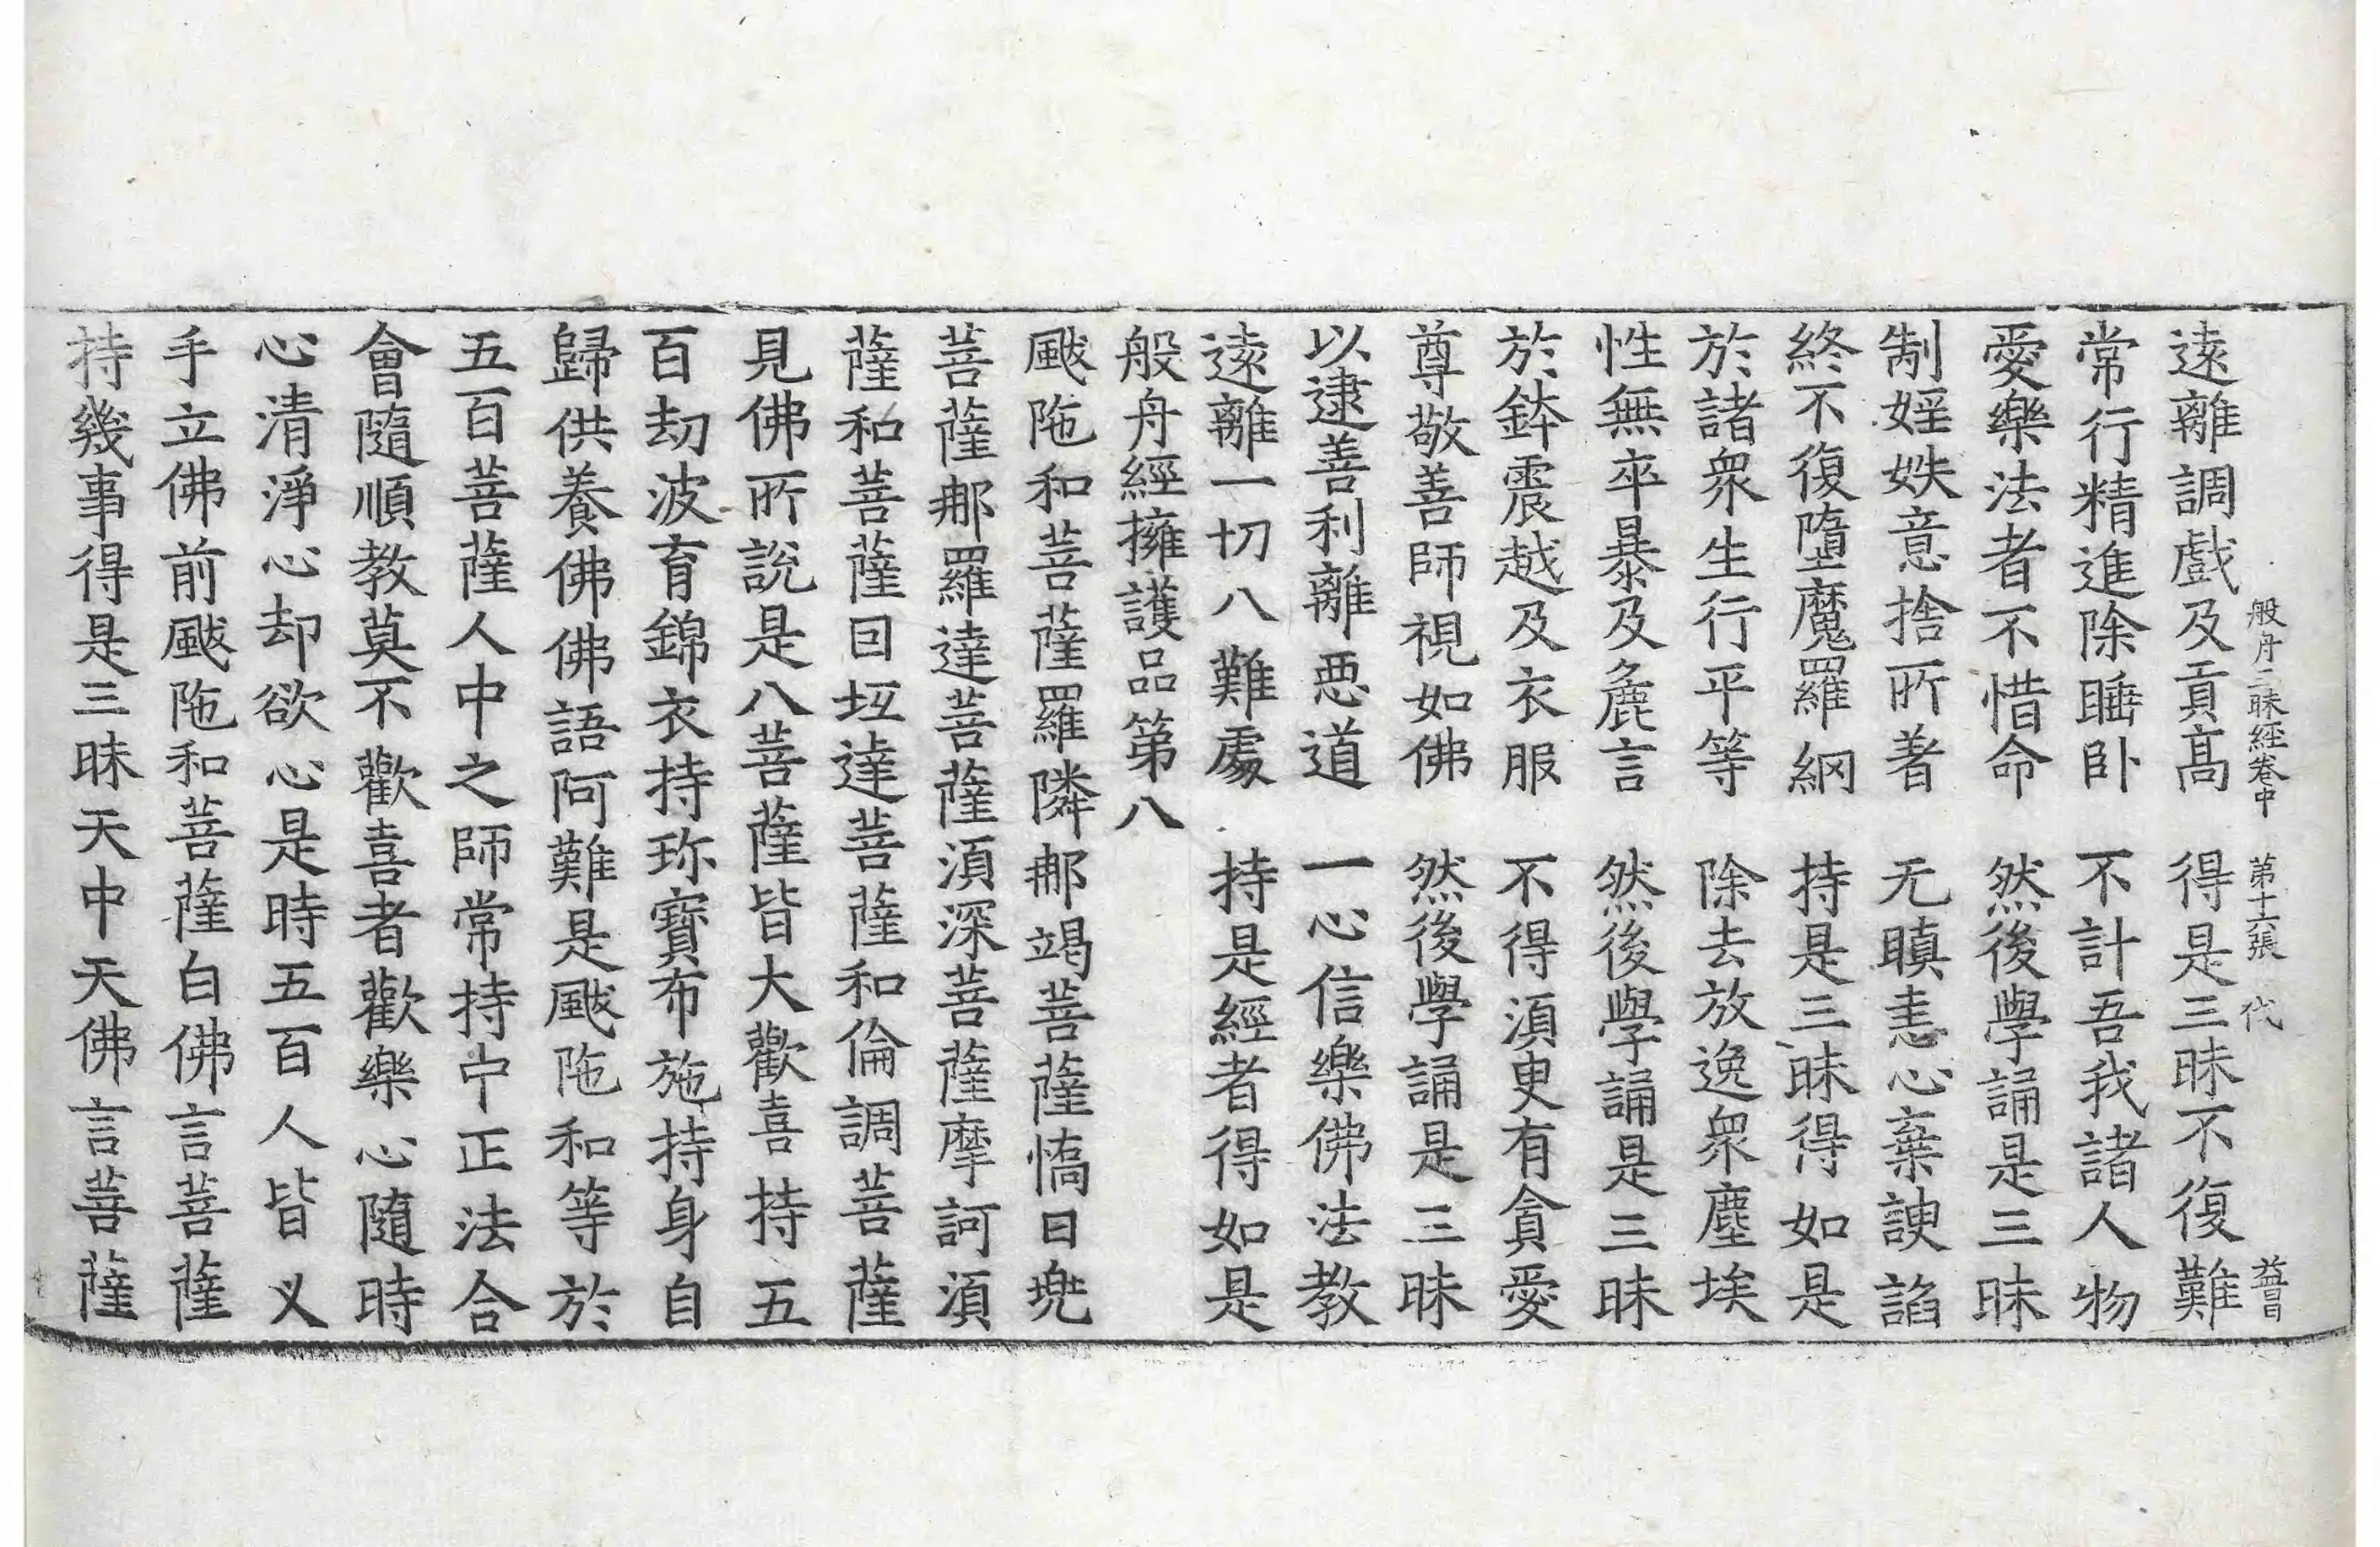 般舟三昧經卷中 第十六張 代 益昌
遠離調戲及貢髙 得是三昧不復難
常行精進除睡卧 不計吾我諸人物
愛樂法者不惜命 然後學誦是三昧
制婬妷意捨所著 无瞋恚心棄諛諂
終不復墮魔羅網 持是三昧得如是
於諸衆生行平等 除去放逸衆塵埃
性無卒暴及麁言 然後學誦是三昧
於鉢震越及衣服 不得湏㕅有貪愛
尊敬善師視如佛 然後學誦是三昧
以逮善利離惡道 一心信樂佛法教
遠離一切八難處 持是經者得如是
般舟經擁護品第八
颰陁和菩薩羅隣那竭菩薩憍曰兠
菩薩那羅達菩薩湏深菩薩摩訶湏
薩和菩薩因坻達菩薩和倫調菩薩
見佛所說是八菩薩皆大歡喜持五
百劫波育錦衣持珎寶布施持身自
歸供養佛佛語阿難是颰陁和等於
五百菩薩人中之師常持中正法合
會隨順教莫不歡喜者歡樂心隨時
心清淨心却欲心是時五百人皆叉
手立佛前颰陁和菩薩白佛言菩薩
持幾事得是三昧天中天佛言菩薩